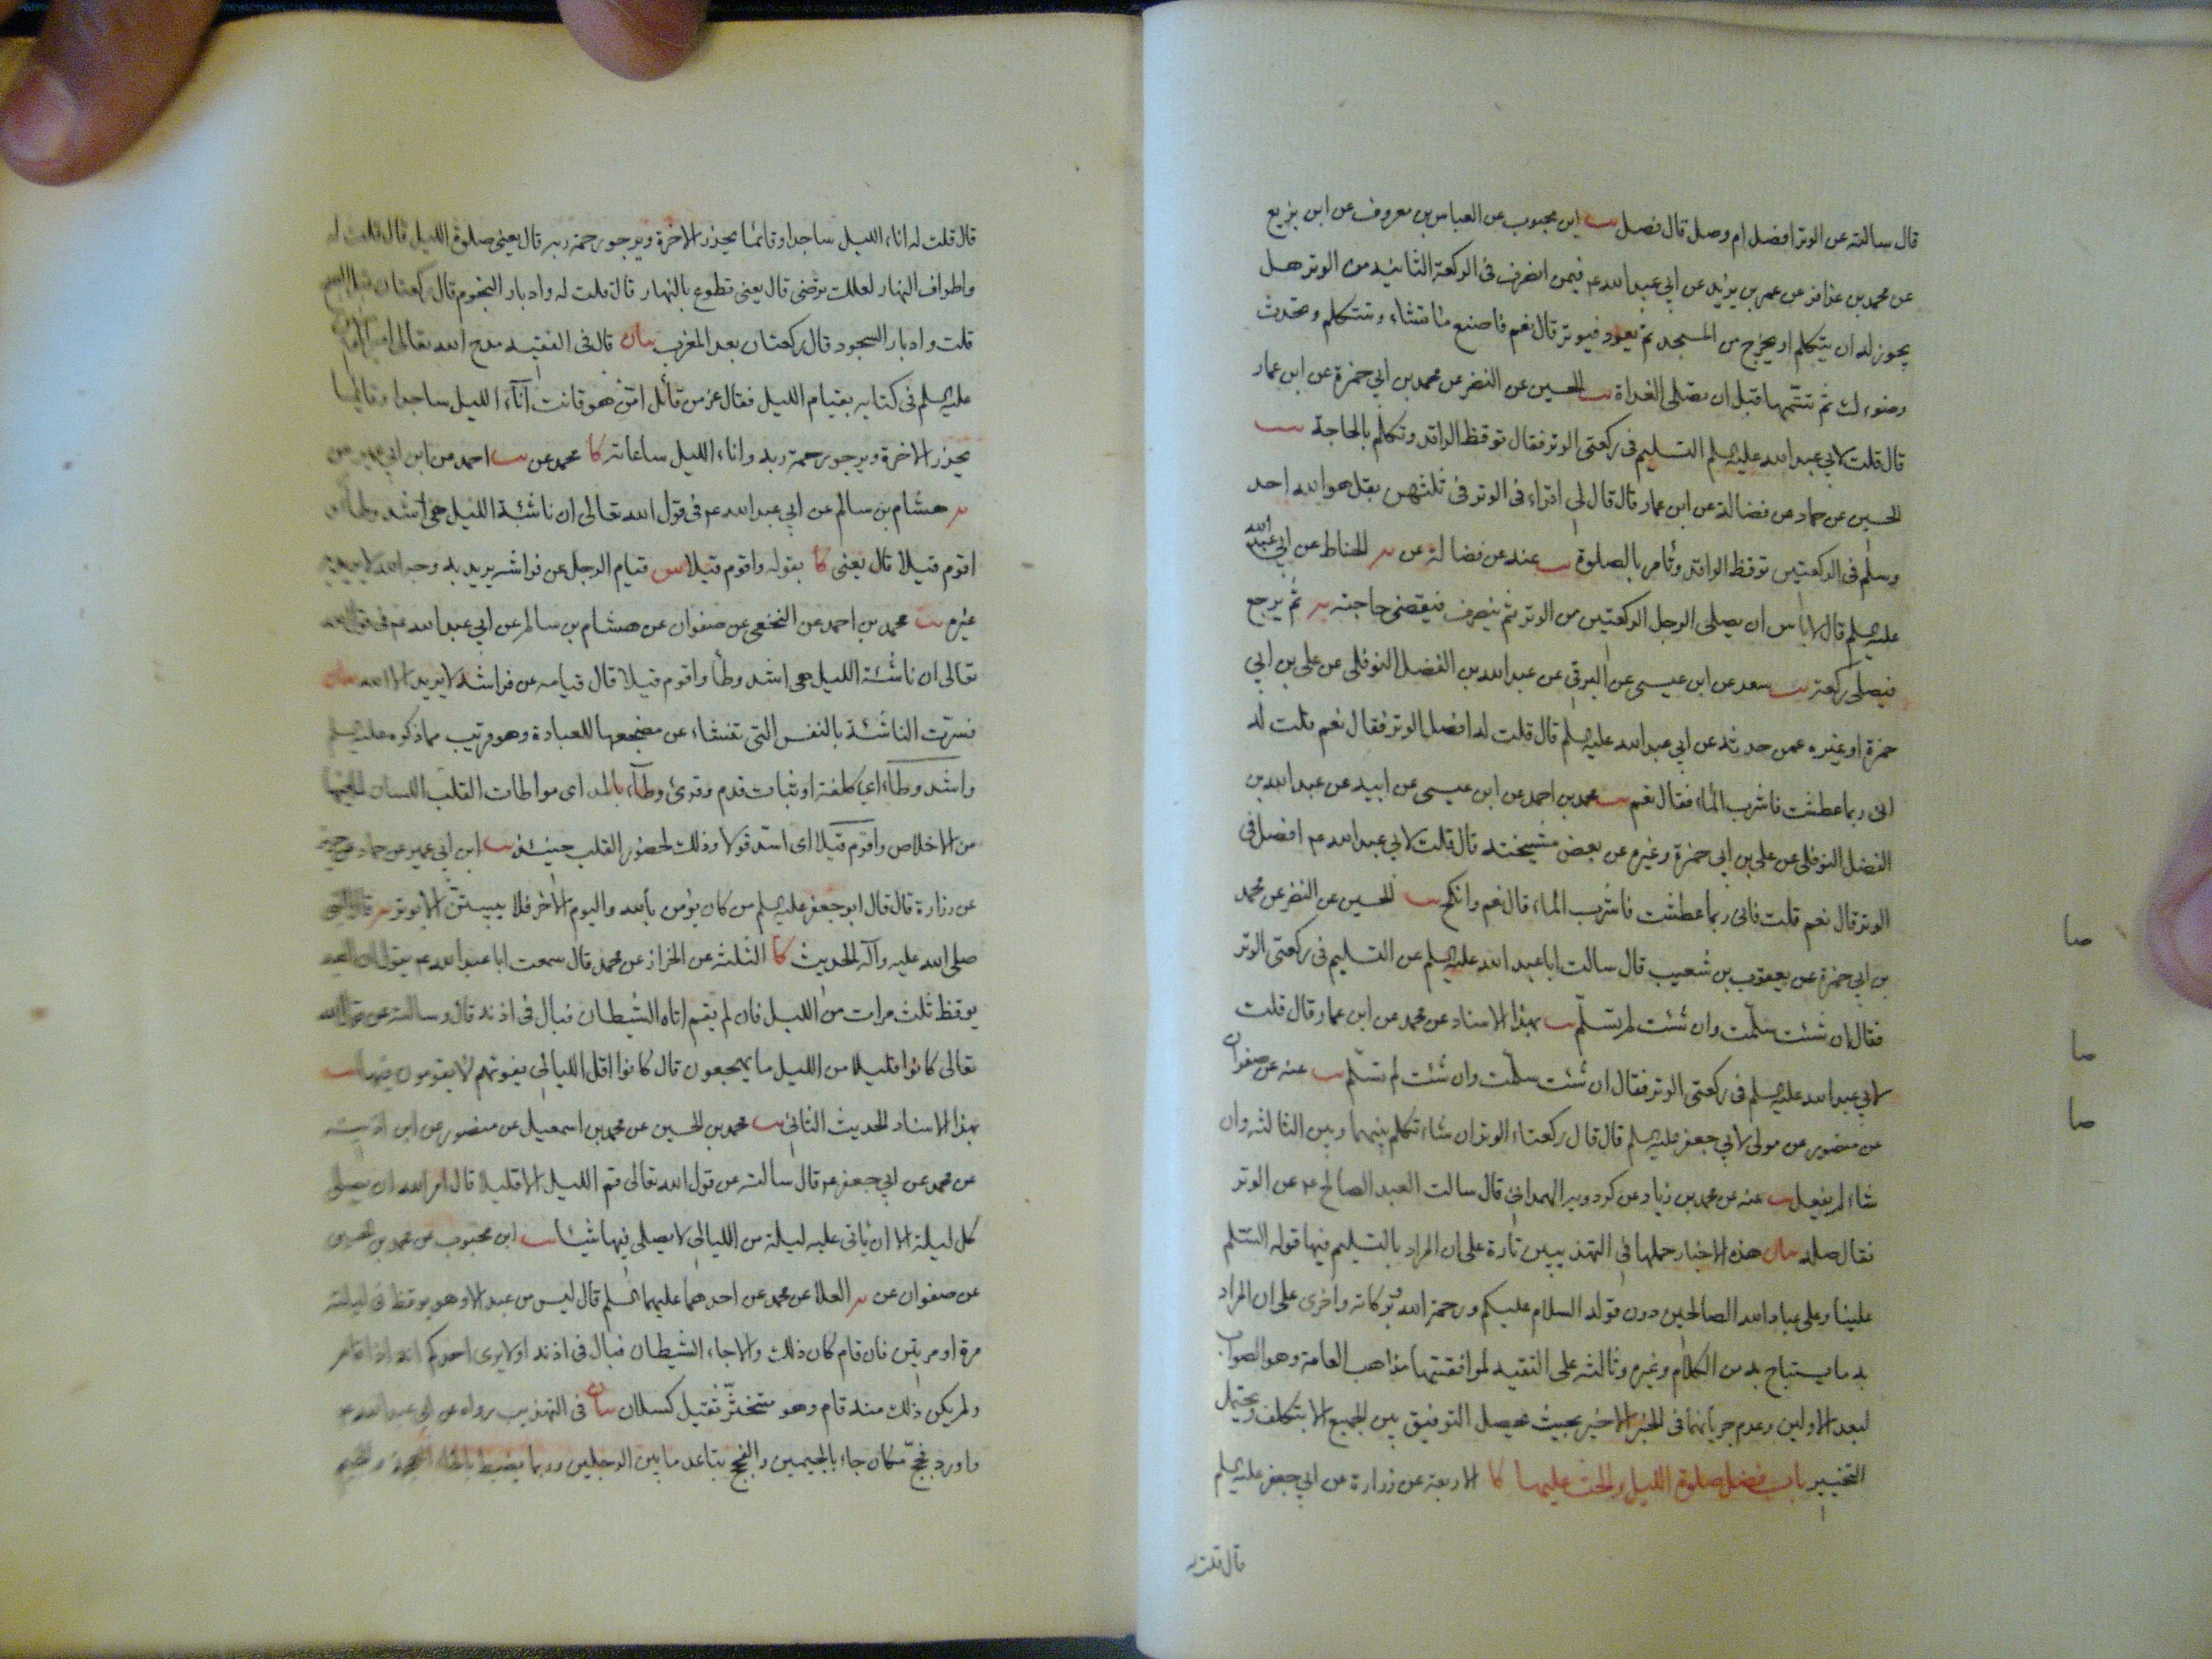 قال سالته عن الوتر افضل ام وصل قال فصل يب ابن محبوب عن العباس بن معروف عن ابن بزيع
عن محمد بن عذافر عن عمر بن يزيد عن ابي عبد الله ع فيمن انصرف فى الركعة الثانيه من الوتر هل
يجوز له ان يتكلم او يخرج من المسجد ثم يعود فيوتر قال نعم فاصنع ما تشاء وتتكلم وتحدث
وضوءك ثم تتمها قبل ان تصلى الغداة يب الحسين عن النضر عن محمد بن ابي حمزة عن ابن عمار
قال قلت لابي عبد الله عليه السلم التسليم فى ركعتى الوتر فقال توقظ الراقد وتكلم بالحاجة يب
الحسين عن حماد عن فضالة عن ابن عمار قال قال لى اقراء فى الوتر فى ثلثهن بقل هو الله احد
وسلم فى الركعتين توقظ الراقد وتامر بالصلوة يب عنه عن فضالة عن ير الحناط عن ابي عبد الله
عليه السلم قال لا باس ان يصلى الرجل الركعتين من الوتر ثم ينصرف فيقضى حاجته ير ثم يرجع
فيصلى ركعة يب سعد عن ابن عيسى عن البرقى عن عبد الله بن الفضل النوفلى عن على بن ابي
حمزة او غيره عمن حدثه عن ابي عبد الله عليه السلم قال قلت له افصل الوتر فقال نعم قلت له
انى ربما عطشت فاشرب الماء فقال نعم يب محمد بن احمد عن ابن عيسى عن ابيه عن عبد الله بن
الفضل النوفلى عن على بن ابي حمزة وغيره عن بعض مشيخته قال قلت لابي عبد الله ع افصل فى
الوتر قال نعم قلت فانى ربما عطشت فاشرب الماء قال نعم وانكح يب الحسين عن النضر عن محمد
بن ابي حمزة عن يعقوب بن شعيب قال سالت ابا عبد الله عليه السلم عن التسليم فى ركعتى الوتر
فقال ان شئت سلّمت وان شئت لم تسلّم يب بهذا الاسناد عن محمد عن ابن عمار قال قلت
لابي عبد الله عليه السلم فى ركعتى الوتر فقال ان شئت سلّمت وان شئت لم تسلّم يب عنه عن صفوان
عن منصور عن مولى لابي جعفر عليه السلم قال قال ركعتاء الوتر ان شاء تكلم بينهما وبين الثالثه وان
شاء لم يفعل يب عنه عن محمد بن زياد عن كردويه الهمدانى قال سالت العبد الصالح ع عن الوتر
فقال صله بيان هذه الاخبار حملها فى التهذيبين تارة على ان المراد بالتسليم فيها قوله السلم
علينا وعلى عباد الله الصالحين دون قوله السلام عليكم ورحمة الله وبركاته واخرى على ان المراد
به ما يستباح به من الكلام وغيره وثالثه على التقيه لموافقتها مذاهب العامة وهو الصواب
لبعد الاولين وعدم جريانهما فى الخبر الاخير بحيث يحصل التوفيق بين الجميع الا بتكلف ويحتمل
التخيير باب فضل صلوة الليل والحث عليها كا الاربعة عن زرارة عن ابي جعفر عليه السلم
قال قلت له
صا
صا
صا
قال قلت له اناء الليل ساجدا وقائما يحذر الاخرة ويرجو رحمة ربه قال يعنى صلوة الليل قال قلت له
واطراف النهار لعلك ترضى قال يعنى تطوع بالنهار قال قلت له وادبار النجوم قال ركعتان قبل الصبح
قلت وادبار السجود قال ركعتان بعد المغرب بيان قال فى الفقيه مدح الله تعالى امير المؤمنين
عليه السلم فى كتابه بقيام الليل فقال عز من قائل امّن هو قانت آناء الليل ساجدا وقائما
يحذر الاخرة ويرجو رحمة ربه واناء الليل ساعاته كا محمد عن يب احمد عن ابن ابي عمير عن
ير هشام بن سالم عن ابي عبد الله ع فى قول الله تعالى ان ناشئة الليل هى اشد وطأ و
اقوم قيلا قال يعنى كا بقوله واقوم قيلا س قيام الرجل عن فراشه يريد به وجه الله لا يريد به
غيره يب محمد بن احمد عن النخعى عن صفوان عن هشام بن سالم عن ابي عبد الله ع فى قول الله
تعالى ان ناشئة الليل هى اشد وطأ واقوم قيلا قال قيامه عن فراشه لا يريد الا الله بيان
فسرت الناشئة بالنفس التى تنشاء عن مضجعها للعبادة وهو قريب مما ذكره عليه السلم
واشد وطأ اى كلفة او ثبات قدم وقرئ وطآء بالمد اى مواطات القلب اللسان
من الاخلاص واقوم قيلا اى اسد قولا وذلك لحضور القلب حينئذ يب ابن ابي عمير عن حماد عن حريز
عن زرارة قال قال ابو جعفر عليه السلم من كان يؤمن بالله واليوم الاخر فلا يبيتن الا بوتر ير قال النبى
صلى الله عليه وآله الحديث كا الثلثه عن الخراز عن محمد قال سمعت ابا عبد الله ع يقول ان العبد
يوقظ ثلث مرات من الليل فان لم يقم اتاه الشيطان فبال فى اذنه قال وسالته عن قول الله
تعالى كانوا قليلا من الليل ما يهجعون قال كانوا اقل الليالى يفوتهم لا يقومون فيها يب
بهذا الاسناد الحديث الثانى يب محمد بن الحسين عن محمد بن اسمعيل عن منصور عن ابن اذينه
عن محمد عن ابي جعفر ع قال سالته عن قول الله تعالى قم الليل الا قليلا قال امر الله ان يصلى
كل ليلة الا ان ياتى عليه ليلة من الليالى لا يصلى فيها شيئا يب ابن محبوب عن محمد بن الحسين
عن صفوان عن ير العلا عن محمد عن احدهما عليهما السلم قال ليس من عبد الا وهو يوقظ فى ليلته
مرة او مرتين فان قام كان ذلك والا جاء الشيطان فبال فى اذنه اولا يرى احدكم انه اذا قام
ولم يكن ذلك منه قام وهو متخثّر ثقيل كسلان بيان فى التهذيب رواه عن ابي عبد الله ع
واورد فحج مكان جاء بالجيمين والفحج تباعد ما بين الرجلين وربما يضبط بالخاء